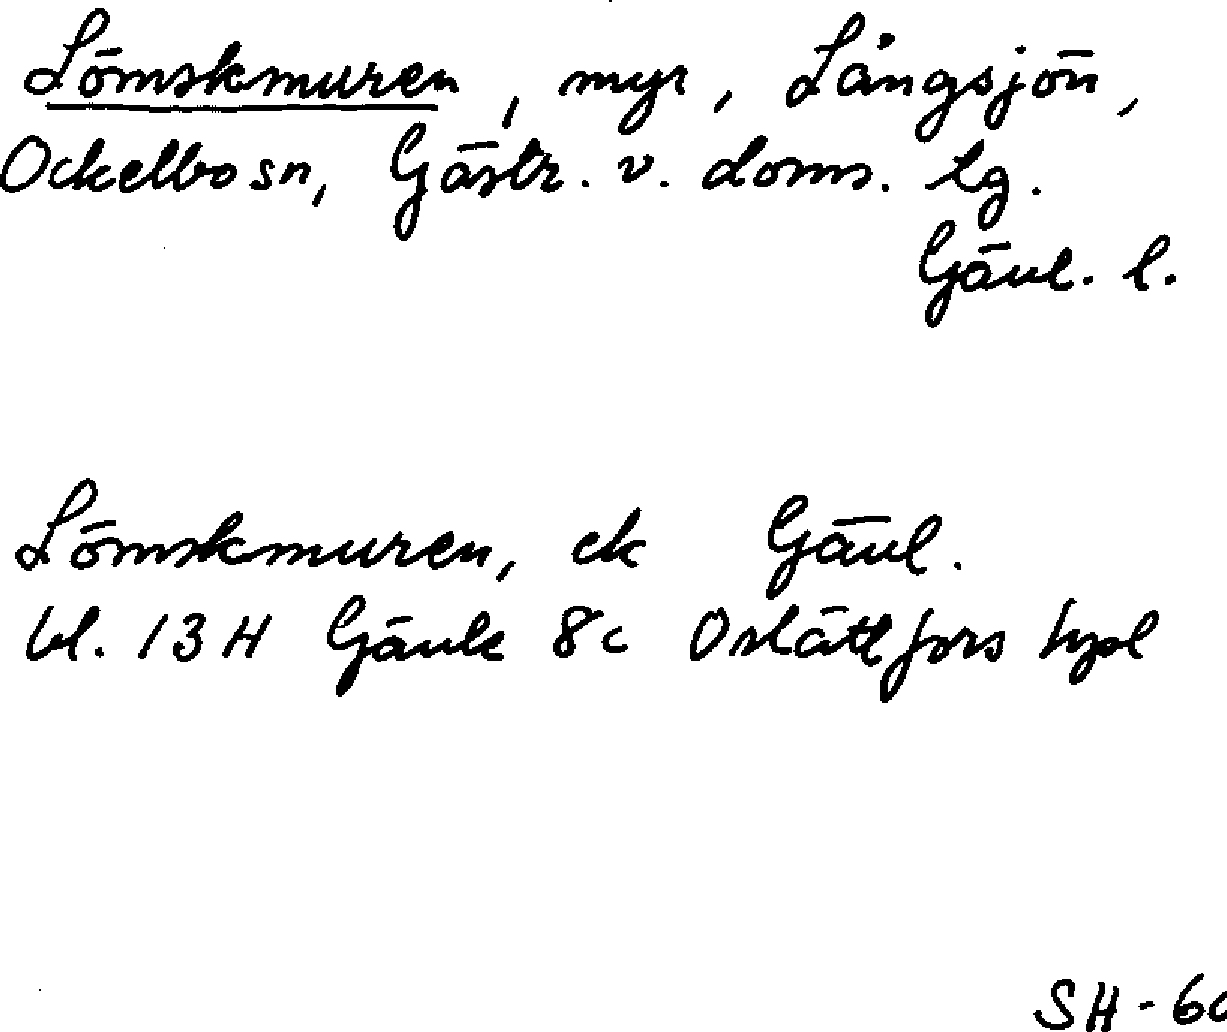 Lömskmuren, myr, Långsjön,
Ockelbo sn, Gästr. v. doms. tg.
Gävl. l.
Lömskmuren, ek Gävl.
bl. 13 H Gävle 8c Oslättfors hpl
SH-60